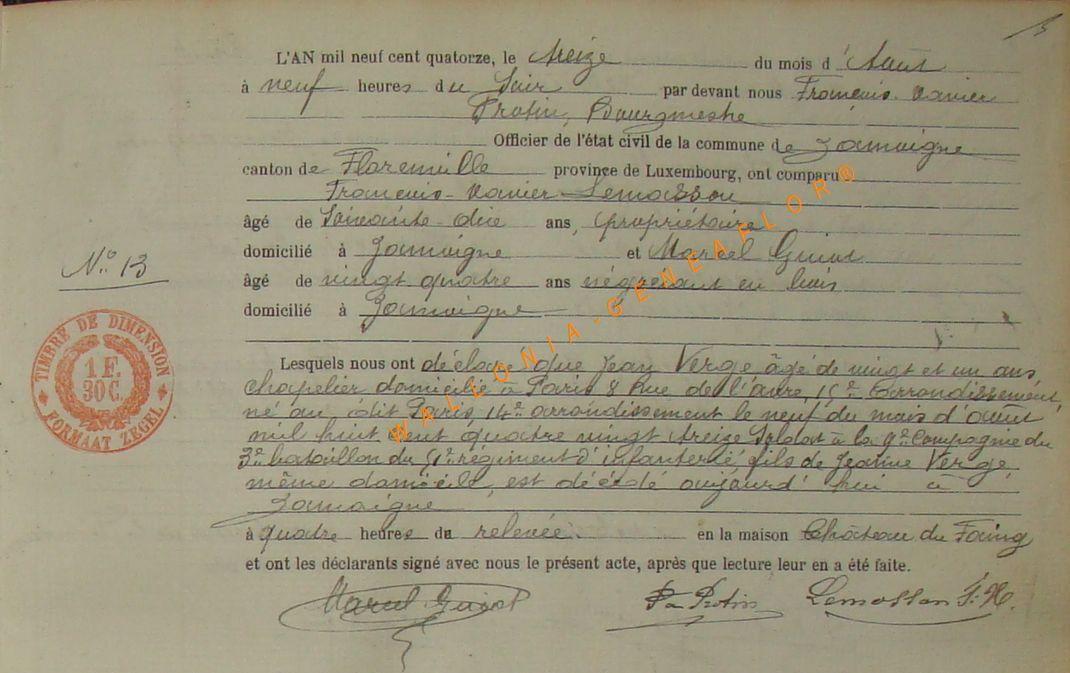 L'AN mil neuf cent quatorze, le treize du mois d'Août
à neuf heures du Soir par devant nous François-Xavier
Protin, Bourgmestre
Officier de l'état civil de la commune de Jamoigne
canton de Florenville province de Luxembourg, ont comparu
François-Xavier Lemasson
âgé de Soixante-dix ans, propriétaire
domicilié à Jamoigne et Marcel Guiot
N° 13
âgé de vingt quatre ans négociant en bois
domicilié à Jamoigne
Lesquels nous ont déclaré que Jean Verge âgé de vingt et un ans,
chapelier domicilié à Paris 8 Rue de 15e arrondissement,
né au dit Paris, 14e arrondissement le neuf du mois d'août
mil huit cent quatre vingt treize Soldat à la 9e Compagnie du
3e bataillon du régiment d'infanterie, fils de Jeanne Verge,
même domicile, est décédé aujourd'hui à
Jamoigne
à quatre heures de relevée en la maison Château du Faing
et ont les déclarants signé avec nous le présent acte, après que lecture leur en a été faite.
Marcel Guiot Protin Lemasson F.-X.
TIMBRE DE DIMENSION
1 F.
30 C.
FORMAAT ZEGEL
WALLONIA-GENEAFLOR®